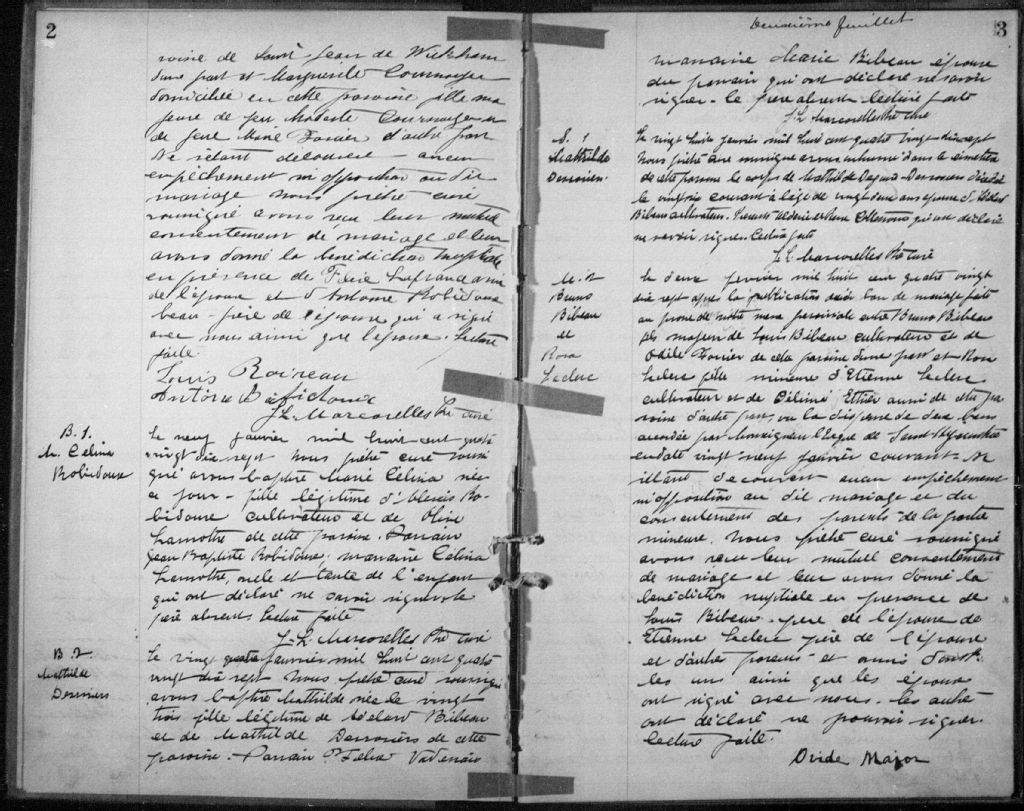 2
roisse de Saint Jean de Wickham
d'une part et Marguerite Cournoyer
domiciliée en cette paroisse fille ma
jeure de feu Modeste Cournoyer et
de feue Marie d'autre part
Ne s'étant découvert aucun
empêchement ni opposition au dit
mariage nous prêtre curé
soussigné avons reçu leur mutuel
consentement de mariage et leur
avons donné la bénédiction nuptiale
en présence de Lafrance ami
de l'époux et d'Antoine Robidoux
beau-père de l'épouse qui a signé
avec nous ainsi que l'époux. Lecture
faite
Louis
J. L. Marcorelles Ptre curé
B. 1.
M. Célina
Robidoux
Le neuf janvier mil huit cent quatre
vingt dix sept nous prêtre curé soussi
gné avons baptisé Marie Célina née
ce jour fille légitime d' Ro-
bidoux cultivateur et de Olive
Lamothe de cette paroisse. Parrain
Jean Baptiste Robidoux, marraine Célina
Lamothe, oncle et tante de l'enfant
qui ont déclaré ne savoir signer le
père absent. Lecture faite
J. L. Marcorelles Ptre curé
B. 2.
Mathilde
Desrosiers
Le vingt quatre janvier mil huit cent quatre
vingt dix sept nous prêtre curé soussigné
avons baptisé Mathilde née le vingt
trois fille légitime de Adélard Bibeau
et de Mathilde Desrosiers de cette
paroisse. Parrain Félix
Deuxième feuillet
3
marraine Marie Bibeau épouse
du parrain qui ont déclaré ne savoir
signer. le père absent. Lecture faite
J. L. Marcorelles Ptre curé
S. 1
Mathilde
Desrosiers.
Le vingt huit janvier mil huit cent quatre vingt dix sept
Nous prêtre curé soussigné avons inhumé dans le cimetière
de cette paroisse le corps de Mathilde Desrosiers décédée
le vingt six courant à l'âge de vingt deux ans épouse d'Adélard
Bibeau cultivateur. Présents qui ont déclaré
ne savoir signer. Lecture faite
J. L. Marcorelles Ptre curé
M. 2
Bruno
Bibeau
et
Rosa
Leclerc
Le deux février mil huit cent quatre vingt
dix sept après la publication d'un ban de mariage faite
au prône de notre messe paroissiale entre Bruno Bibeau
fils majeur de Louis Bibeau cultivateur et de
Odile de cette paroisse d'une part et Rosa
Leclerc fille mineure d'Etienne Leclerc
cultivateur et de Célina Ethier aussi de cette pa
roisse d'autre part, vu la dispense de deux bans
accordée par Monseigneur l'Evêque de Saint Hyacinthe
en date vingt neuf janvier courant. Ne
s'étant découvert aucun empêchement
ni opposition au dit mariage et du
consentement des parents de la partie
mineure. Nous prêtre curé soussigné
avons reçu leur mutuel consentement
de mariage et leur avons donné la
bénédiction nuptiale en présence de
Louis Bibeau père de l'époux de
Etienne Leclerc père de l'épouse
et d'autres parents et amis dont
les uns ainsi que les époux
ont signé avec nous. les autres
ont déclaré ne pouvoir signer.
Lecture faite.
Ovide Major